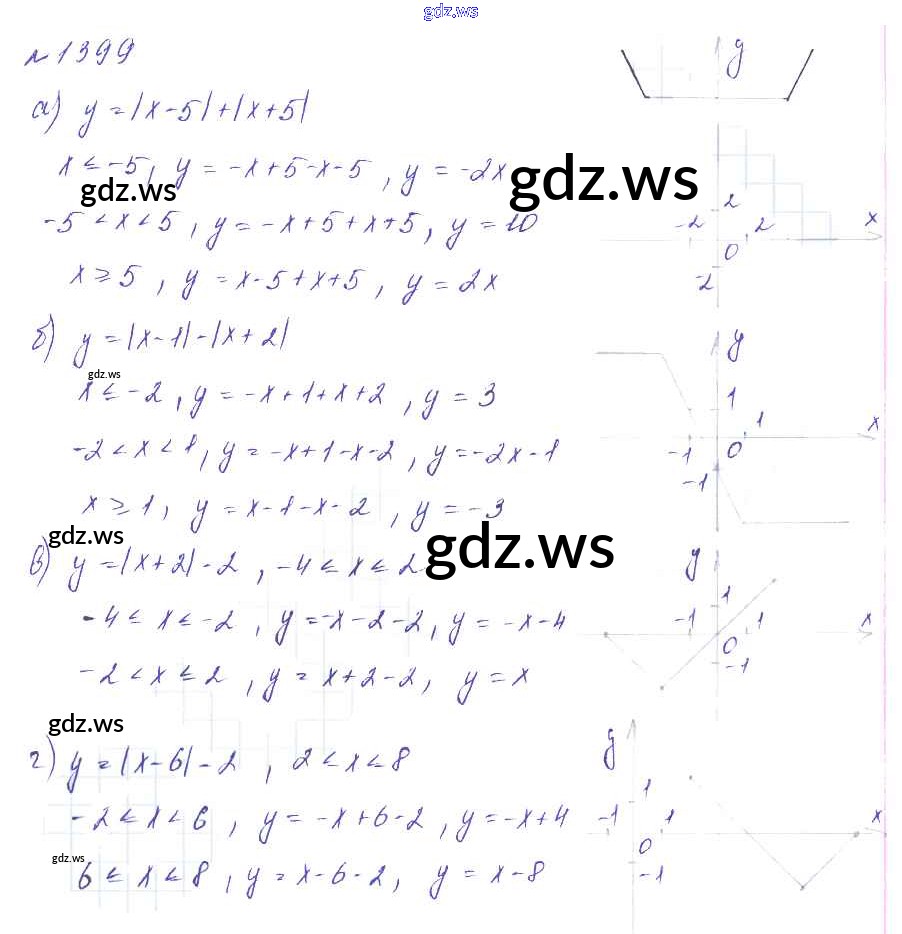 gdz.ws
№1399
а) y = |x-5|+|x+5|
x ≤ -5, y = -x+5-x-5, y = -2x
gdz.ws gdz.ws
-5 < x < 5, y = -x+5+x+5, y = 10
x ≥ 5, y = x-5+x+5, y = 2x
y
2
-2 2 x
0
-2
б) y = |x-1|-|x+2|
gdz.ws
x ≤ -2, y = -x+1+x+2, y = 3
-2 < x < 1, y = -x+1-x-2, y = -2x-1
x ≥ 1, y = x-1-x-2, y = -3
y
1
1 x
-1 0
-1
gdz.ws gdz.ws
в) y = |x+2|-2, -4 ≤ x ≤ 2
-4 ≤ x ≤ -2, y = -x-2-2, y = -x-4
-2 < x ≤ 2, y = x+2-2, y = x
y
1
-1 1 x
0
-1
gdz.ws
г) y = |x-6|-2, 2 ≤ x ≤ 8
-2 ≤ x < 6, y = -x+6-2, y = -x+4
gdz.ws
6 ≤ x ≤ 8, y = x-6-2, y = x-8
y
1
-1 1 x
0
-1